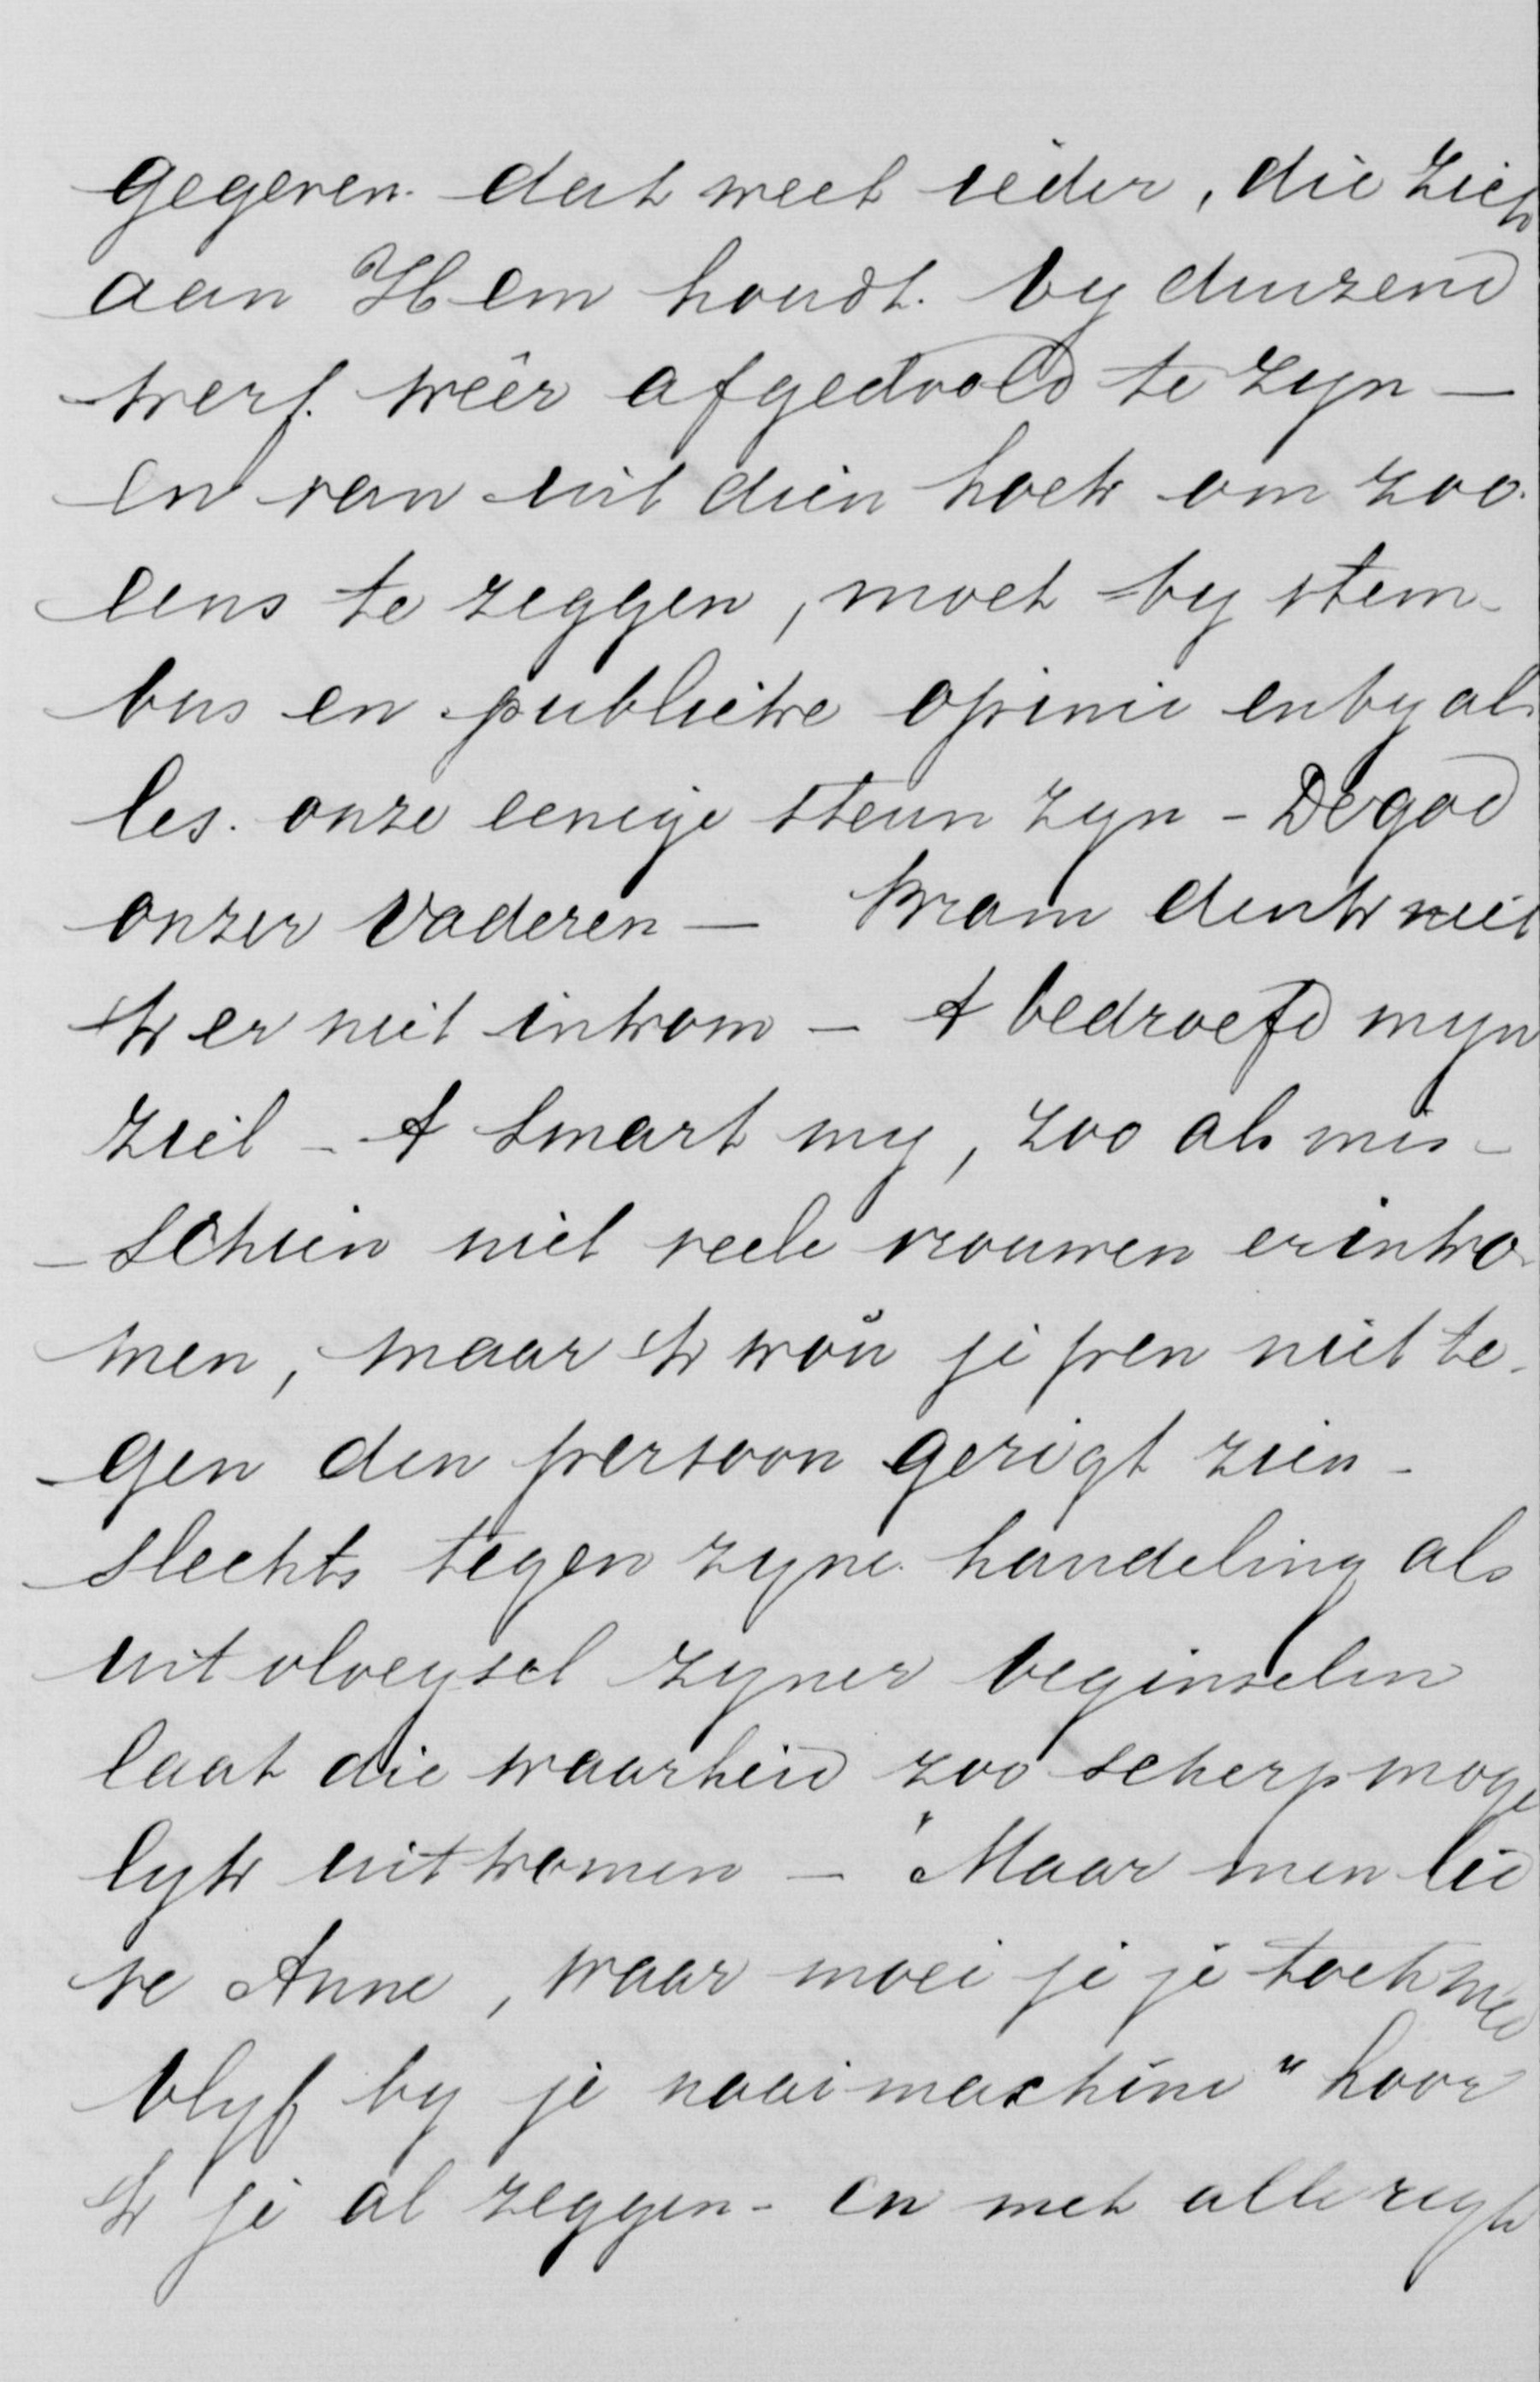 gegeven. dat weet ieder, die zich
aan Hem houdt. by duizend
werf. weêr afgedoold te zyn —
en van uit dien hoek om zoo.
eens te zeggen, moet by stem-
bus en publieke opinie en by al-
les. onze eenige steun zyn - De god
onzer Vaderen — Bram denk niet
ik er niet inkom — t bedroefd myn
ziel - t smart my, zoo als mis-
schien niet veele vrouwen er inko-
men, maar ik woû je pen niet te-
gen den persoon gerigt zien -
slechts tegen zyne handeling als
uitvloeysel zyner beginselen
laat die waarheid zoo scherp moge
lyk uitkomen — "Maar men lie
ve Anne, waar moei je je toch meê
blyf by je naaimachine" hoor
ik je al zeggen - en met alle regt